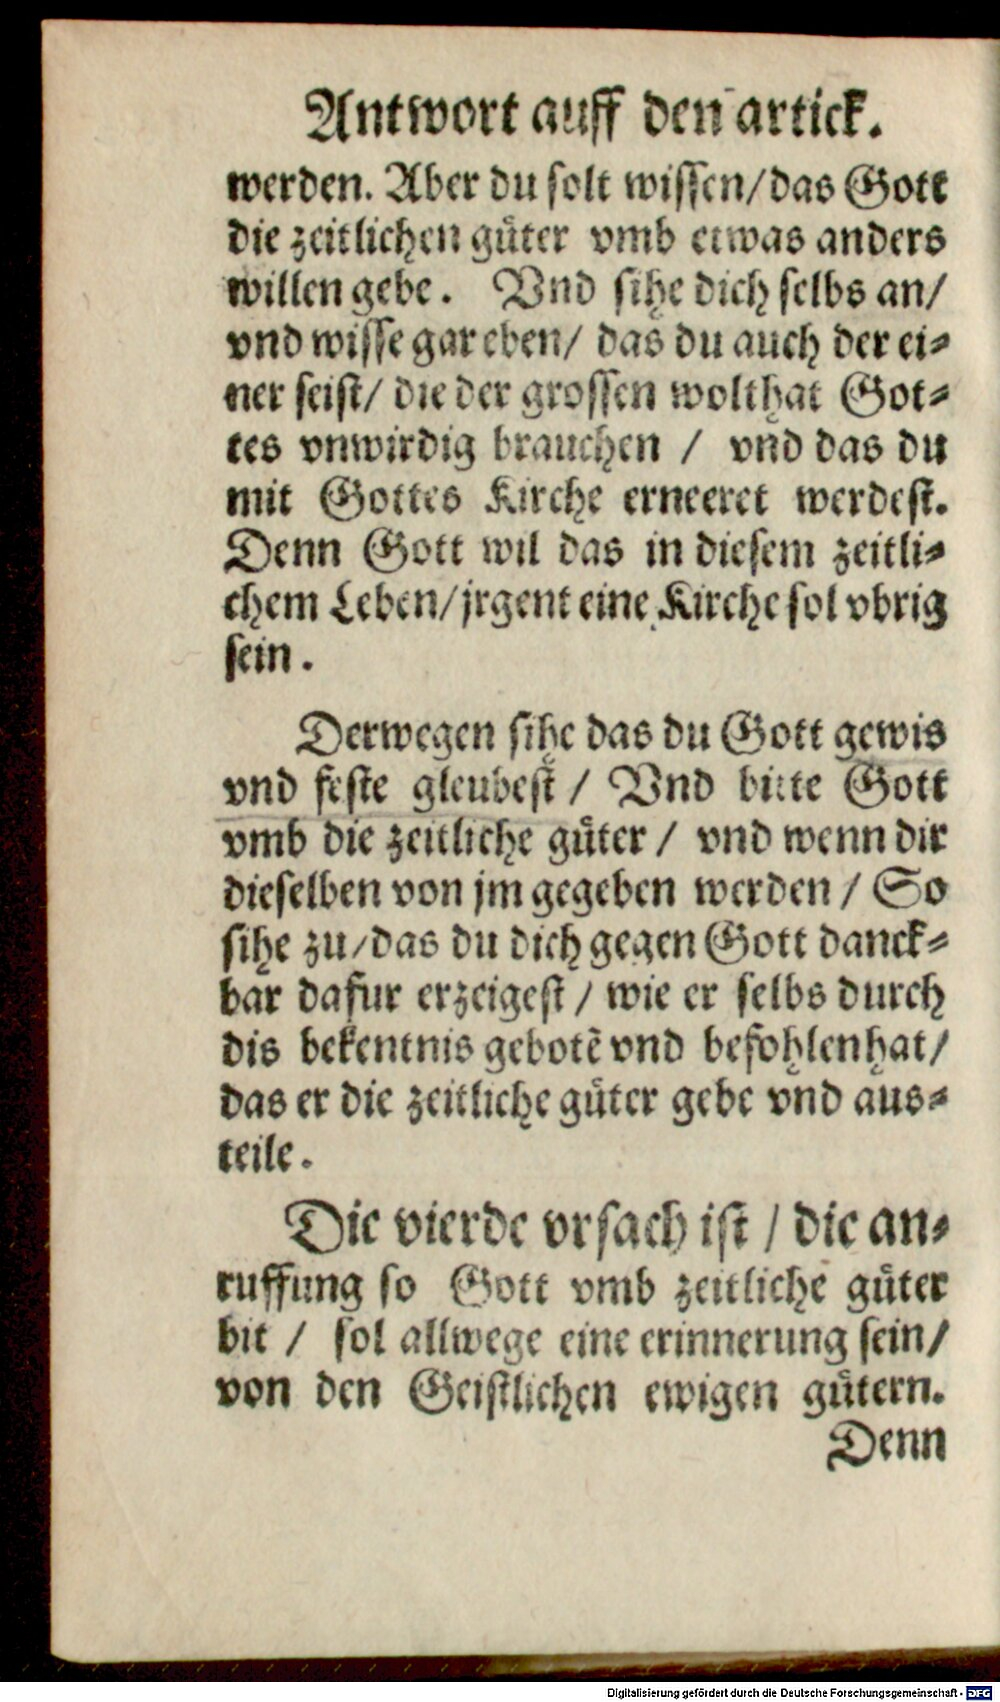 Antwort auff den artick.
werden. Aber du solt wissen/das Gott
die zeitlichen güter vmb etwas anders
willen gebe. Vnd sihe dich selbs an/
vnd wisse gar eben/ das du auch der ei=
ner seist/ die der grossen wolthat Got=
tes vnwirdig brauchen / vnd das du
mit Gottes Kirche erneeret werdest.
Denn Gott wil das in diesem zeitli=
chem Leben/jrgent eine Kirche sol vbrig
sein.
Derwegen sihe das du Gott gewis
vnd feste gleubest / Vnd bitte Gott
vmb die zeitliche güter / vnd wenn dir
dieselben von jm gegeben werden / So
sihe zu/das du dich gegen Gott danck=
bar dafur erzeigest / wie er selbs durch
dis bekentnis gebotẽ vnd befohlen hat/
das er die zeitliche güter gebe vnd aus=
teile.
Die vierde vrsach ist / die an=
ruffung so Gott vmb zeitliche güter
bit / sol allwege eine erinnerung sein/
von den Geistlichen ewigen gütern.
Denn
Digitalisierung gefördert durch die Deutsche Forschungsgemeinschaft - DFG